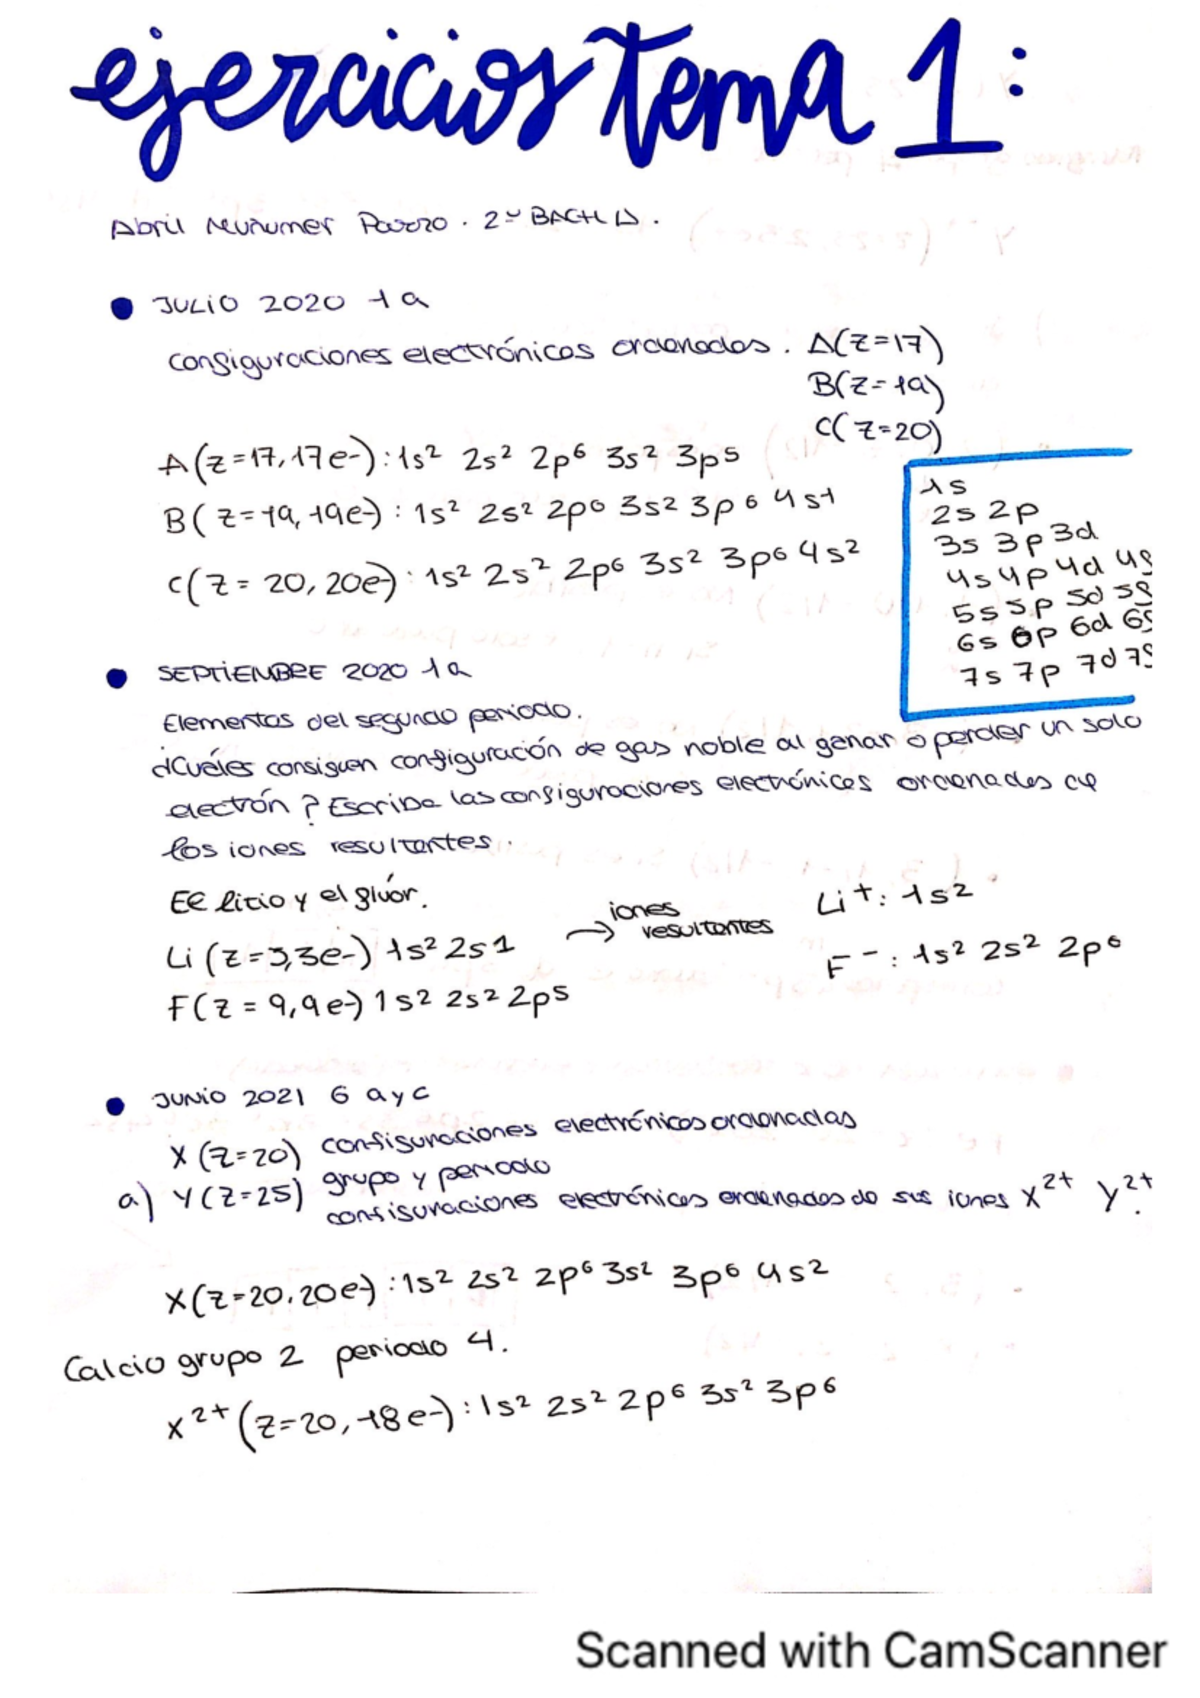 ejercicios tema 1:
Abril Muñumer Parro. 2º BACH A.
JULIO 2020 1a
configuraciones electrónicas ordenadas. A(Z=17)
B(Z=19)
C(Z=20)
A(Z=17, 17e-): 1s² 2s² 2p⁶ 3s² 3p5
B(Z=19, 19e-): 1s² 2s² 2p⁶ 3s² 3p⁶ 4s1
C(Z=20, 20e-): 1s² 2s² 2p⁶ 3s² 3p⁶ 4s²
1s
2s 2p
3s 3p 3d
4s 4p 4d 4f
5s 5p 5d 5f
6s 6p 6d 6f
7s 7p 7d 7f
SEPTIEMBRE 2020 1a
Elementos del segundo periodo.
¿Cuáles consiguen configuración de gas noble al ganar o perder un solo
electrón? Escriba las configuraciones electrónicas ordenadas de
los iones resultantes.
El litio y el flúor.
Li (Z=3, 3e-) 1s² 2s1
F(Z=9, 9e-) 1s2 2s2 2p5
→ iones resultantes
Li+: 1s2
F-: 1s² 2s² 2p⁶
JUNIO 2021 6 a y c
X (Z=20) configuraciones electrónicas ordenadas
a) Y (Z=25) grupo y periodo
configuraciones electrónicas ordenadas de sus iones X²⁺ Y²⁺.
X(Z=20, 20e-): 1s² 2s² 2p⁶ 3s² 3p⁶ 4s²
Calcio grupo 2 periodo 4.
X²⁺ (Z=20, 18e-): 1s² 2s² 2p⁶ 3s² 3p⁶
Scanned with CamScanner